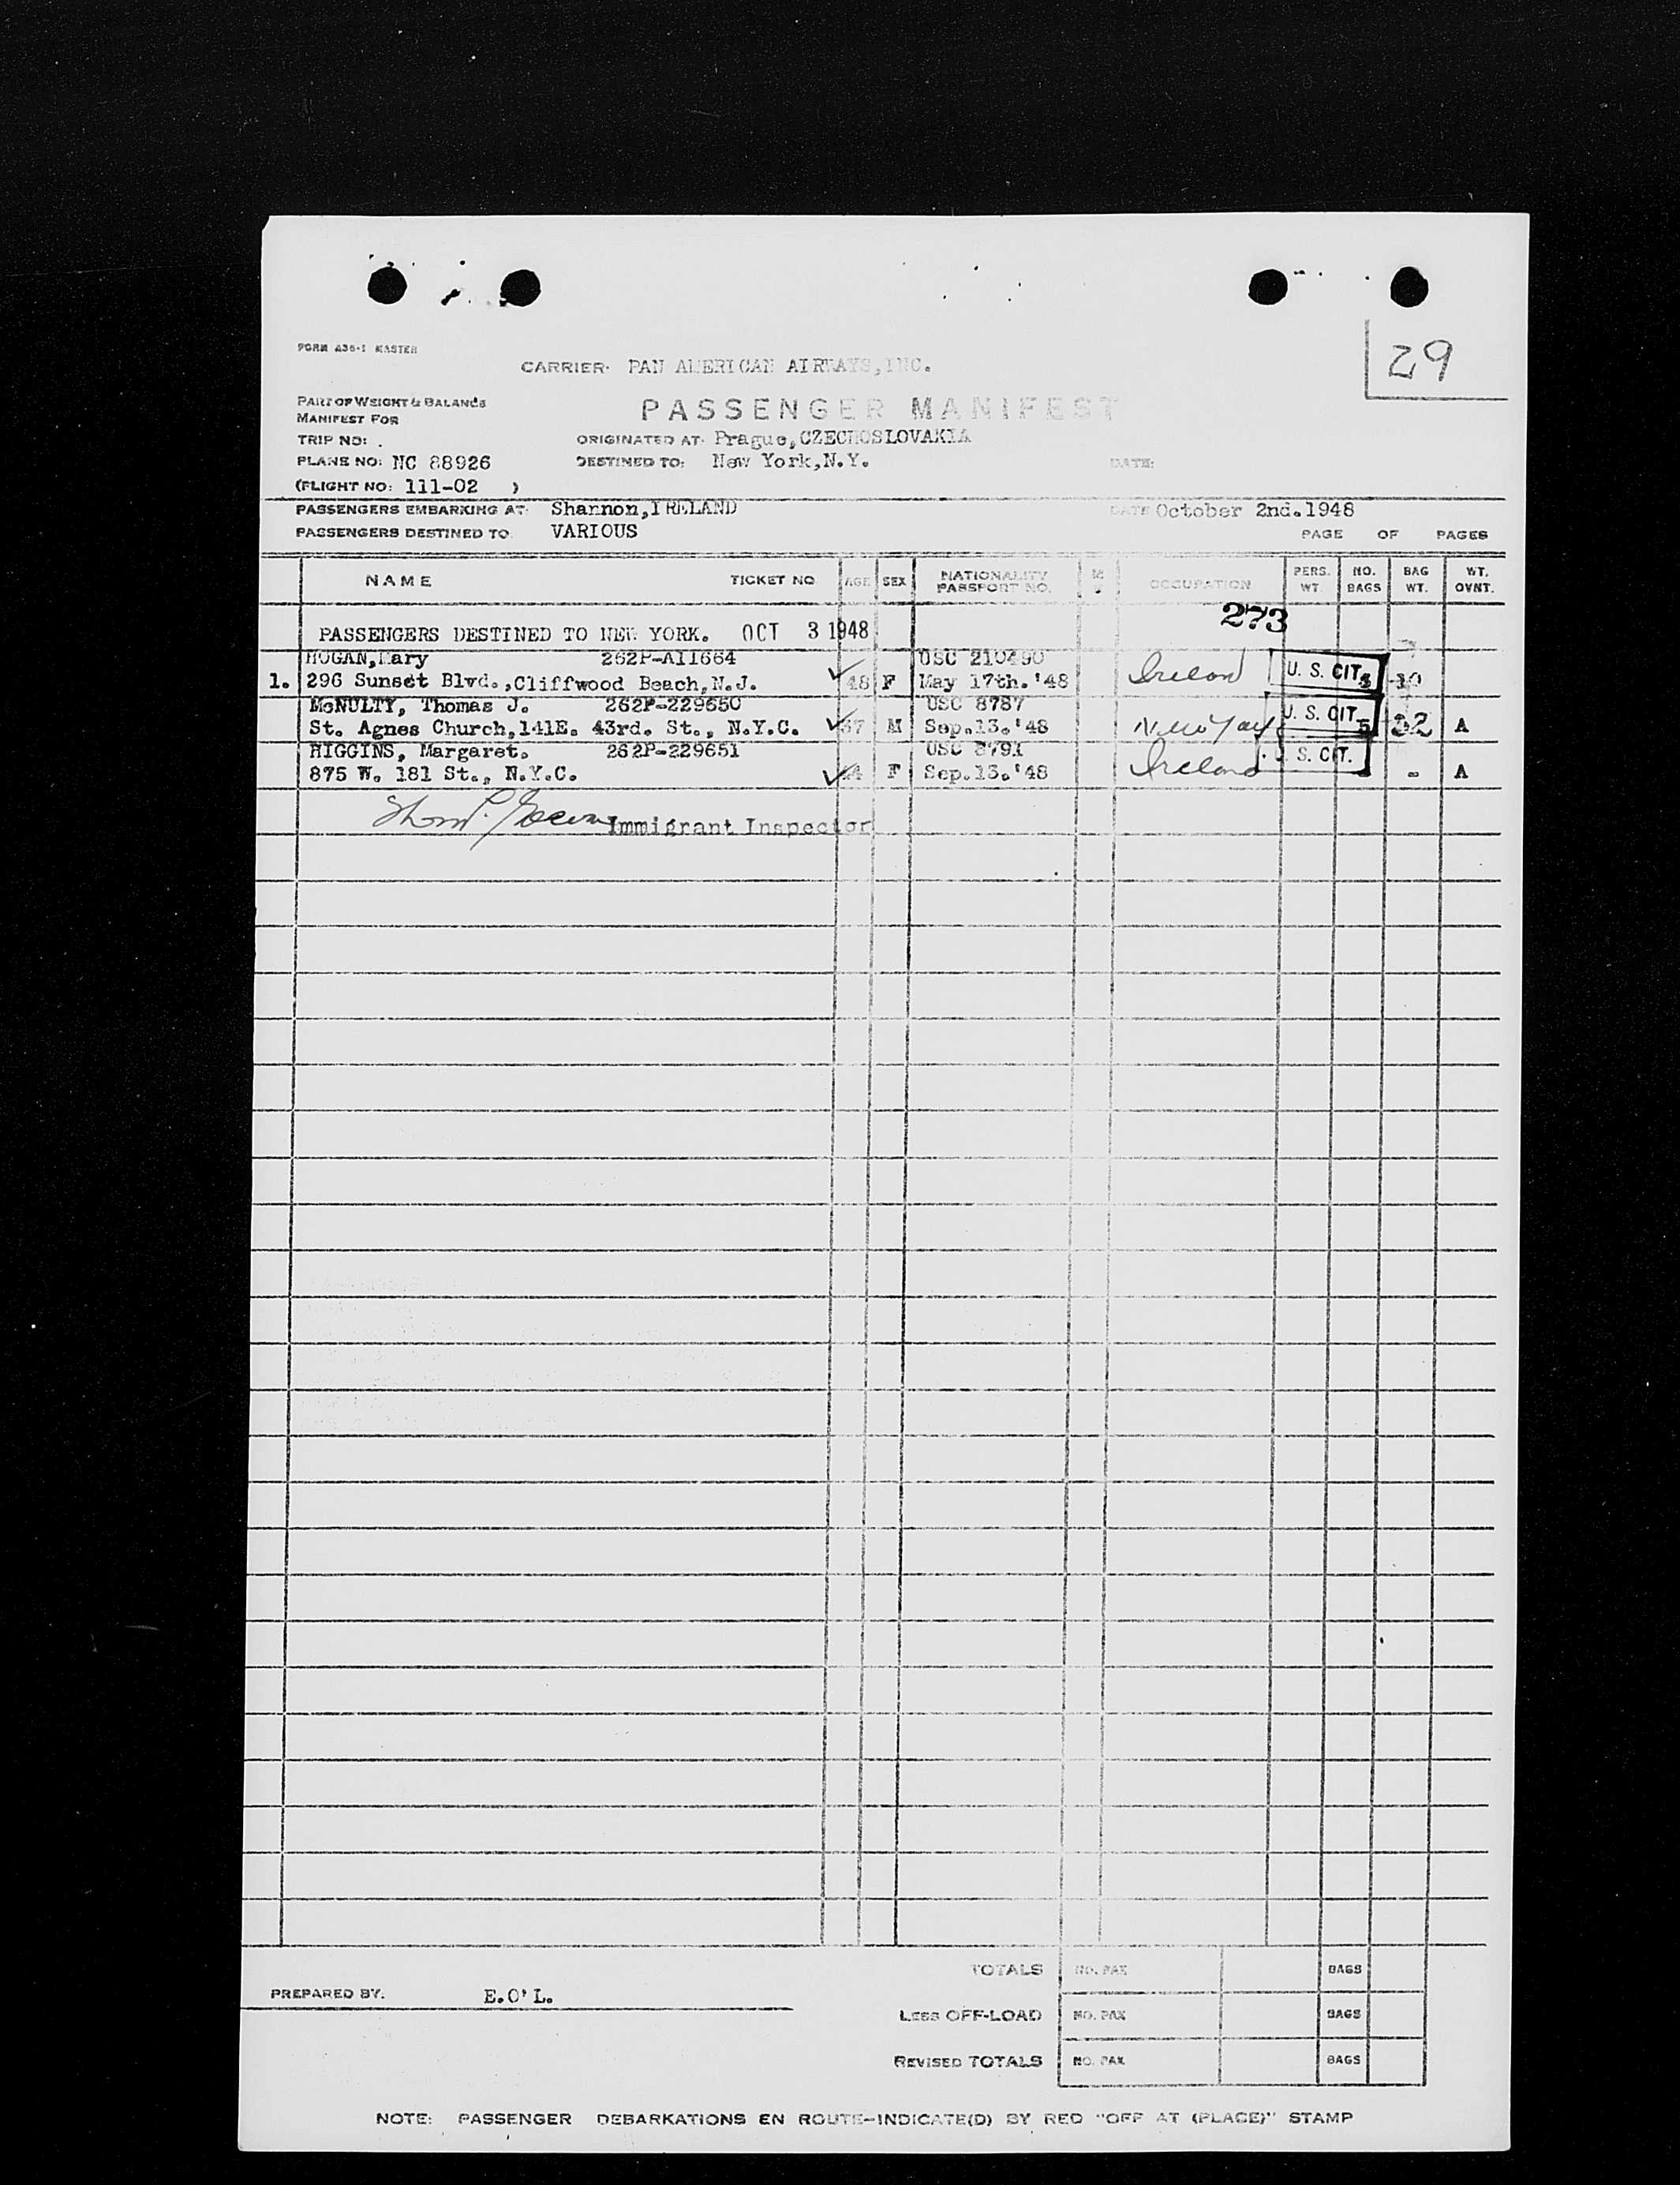 29
FORM A36-1 MASTER
CARRIER: PAN AMERICAN AIRWAYS, INC.
PART OF WEIGHT & BALANCE
MANIFEST FOR
PASSENGER MANIFEST
TRIP NO: .
ORIGINATED AT: Prague, CZECHOSLOVAKIA
PLANE NO: NC 88926
DESTINED TO: New York, N.Y.
DATE:
(FLIGHT NO: 111-02 )
PASSENGERS EMBARKING AT: Shannon, IRELAND
DATE October 2nd. 1948
PASSENGERS DESTINED TO: VARIOUS
PAGE OF PAGES
NAME TICKET NO AGE SEX NATIONALITY PASSPORT NO. OCCUPATION PERS. WT. NO. BAGS BAG WT. WT. OVNT.
273
PASSENGERS DESTINED TO NEW YORK. OCT 3 1948
HOGAN, Mary 262P-A11664 USC 210490
1. 296 Sunset Blvd., Cliffwood Beach, N.J. 48 F May 17th. '48 Ireland U. S. CIT.
McNULTY, Thomas J. 262P-229650 USC 8787
St. Agnes Church, 141E. 43rd. St., N.Y.C. 37 M Sep. 13. '48 New York U. S. CIT. 5 32 A
HIGGINS, Margaret. 262P-229651 USC 8791
875 W. 181 St., N.Y.C. F Sep. 13. '48 Ireland U. S. CIT. - - A
Immigrant Inspector
TOTALS NO. PAX BAGS
PREPARED BY: E.O'L.
LESS OFF-LOAD NO. PAX BAGS
REVISED TOTALS NO. PAX BAGS
NOTE: PASSENGER DEBARKATIONS EN ROUTE-INDICATE(D) BY RED "OFF AT (PLACE)" STAMP